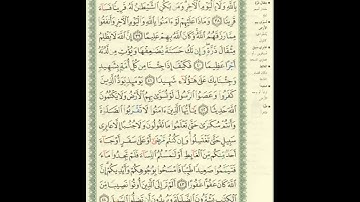 بِٱللَّهِ وَلَا بِٱلۡيَوۡمِ ٱلۡأٓخِرِۗ وَمَن يَكُنِ ٱلشَّيۡطَٰنُ لَهُۥ قَرِينٗا فَسَآءَ
قَرِينٗا ٣٨ وَمَاذَا عَلَيۡهِمۡ لَوۡ ءَامَنُواْ بِٱللَّهِ وَٱلۡيَوۡمِ ٱلۡأٓخِرِ وَأَنفَقُواْ
مِمَّا رَزَقَهُمُ ٱللَّهُۚ وَكَانَ ٱللَّهُ بِهِمۡ عَلِيمًا ٣٩ إِنَّ ٱللَّهَ لَا يَظۡلِمُ
مِثۡقَالَ ذَرَّةٖۖ وَإِن تَكُ حَسَنَةٗ يُضَٰعِفۡهَا وَيُؤۡتِ مِن لَّدُنۡهُ
أَجۡرًا عَظِيمٗا ٤٠ فَكَيۡفَ إِذَا جِئۡنَا مِن كُلِّ أُمَّةِۭ بِشَهِيدٖ
وَجِئۡنَا بِكَ عَلَىٰ هَٰٓؤُلَآءِ شَهِيدٗا ٤١ يَوۡمَئِذٖ يَوَدُّ ٱلَّذِينَ
كَفَرُواْ وَعَصَوُاْ ٱلرَّسُولَ لَوۡ تُسَوَّىٰ بِهِمُ ٱلۡأَرۡضُ وَلَا يَكۡتُمُونَ
ٱللَّهَ حَدِيثٗا ٤٢ يَٰٓأَيُّهَا ٱلَّذِينَ ءَامَنُواْ لَا تَقۡرَبُواْ ٱلصَّلَوٰةَ
وَأَنتُمۡ سُكَٰرَىٰ حَتَّىٰ تَعۡلَمُواْ مَا تَقُولُونَ وَلَا جُنُبًا إِلَّا عَابِرِي
سَبِيلٍ حَتَّىٰ تَغۡتَسِلُواْۚ وَإِن كُنتُم مَّرۡضَىٰٓ أَوۡ عَلَىٰ سَفَرٍ أَوۡ جَآءَ
أَحَدٞ مِّنكُم مِّنَ ٱلۡغَآئِطِ أَوۡ لَٰمَسۡتُمُ ٱلنِّسَآءَ فَلَمۡ تَجِدُواْ مَآءٗ
فَتَيَمَّمُواْ صَعِيدٗا طَيِّبٗا فَٱمۡسَحُواْ بِوُجُوهِكُمۡ وَأَيۡدِيكُمۡۗ إِنَّ
ٱللَّهَ كَانَ عَفُوًّا غَفُورًا ٤٣ أَلَمۡ تَرَ إِلَى ٱلَّذِينَ أُوتُواْ نَصِيبٗا مِّنَ
ٱلۡكِتَٰبِ يَشۡتَرُونَ ٱلضَّلَٰلَةَ وَيُرِيدُونَ أَن تَضِلُّواْ ٱلسَّبِيلَ